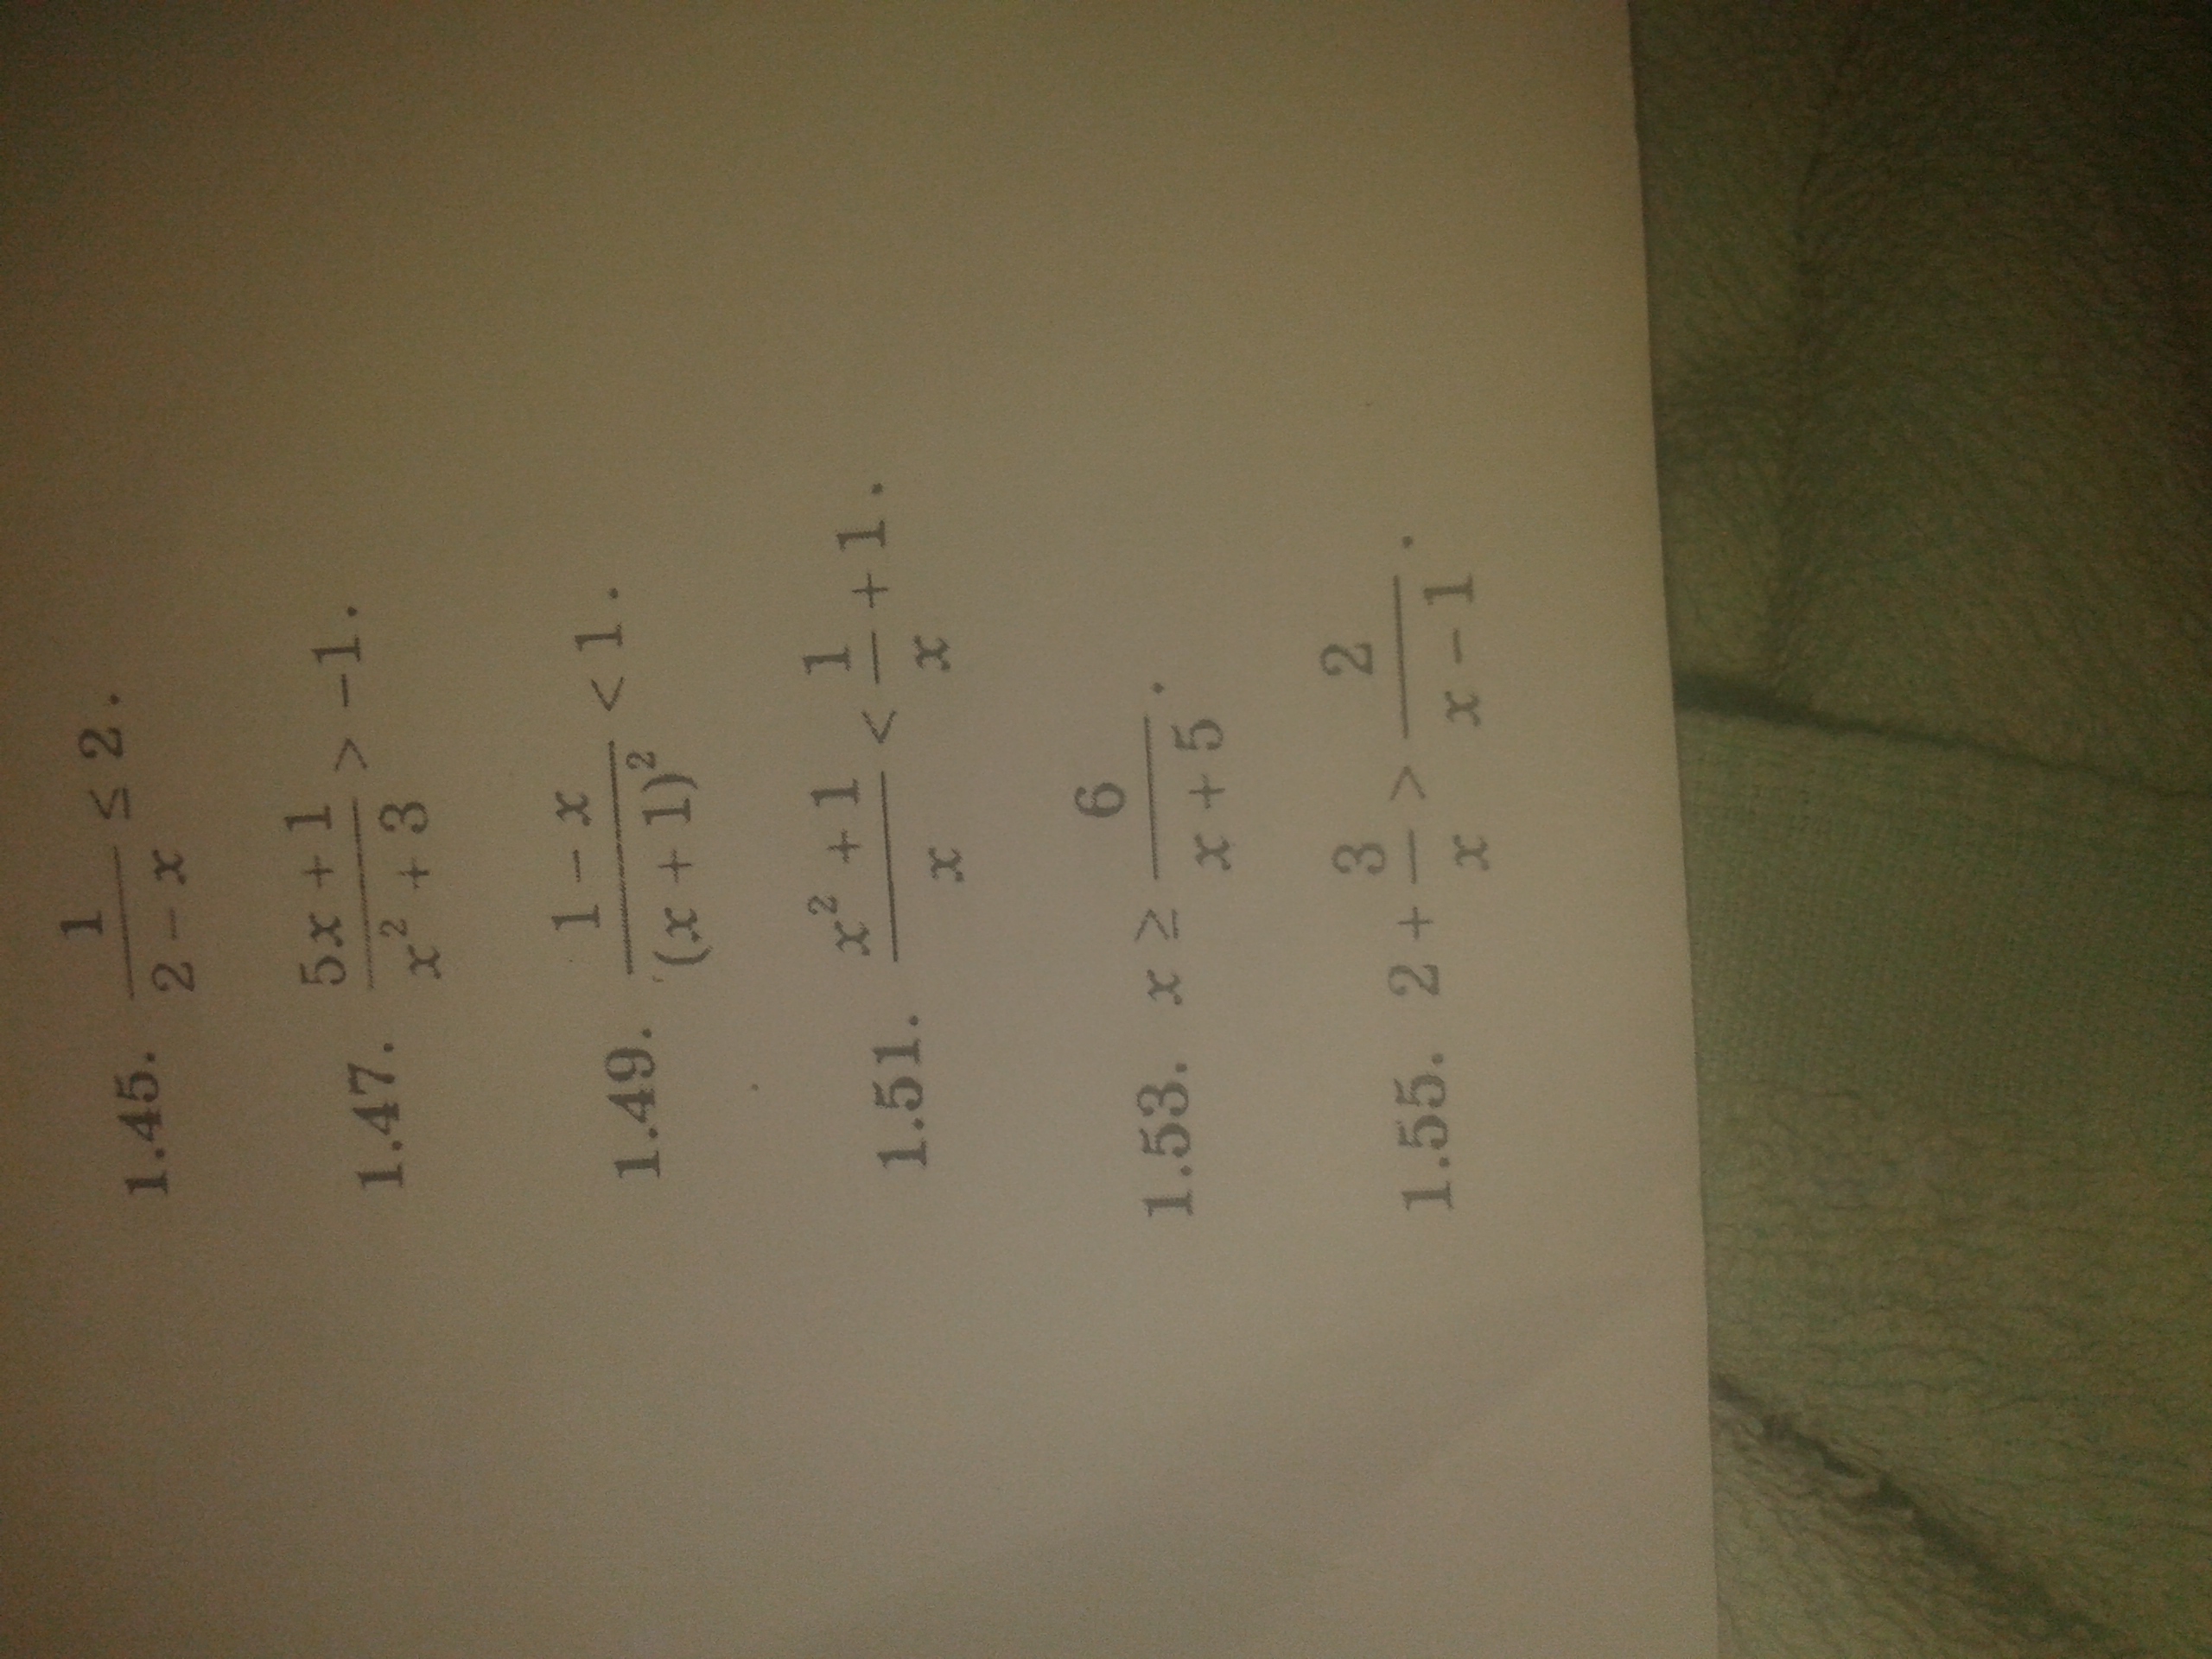 1.45. 1/(2 − x) ≤ 2.
1.47. (5x + 1)/(x² + 3) > −1.
1.49. (1 − x)/(x + 1)² < 1.
1.51. (x² + 1)/x < 1/x + 1.
1.53. x ≥ 6/(x + 5).
1.55. 2 + 3/x > 2/(x − 1).